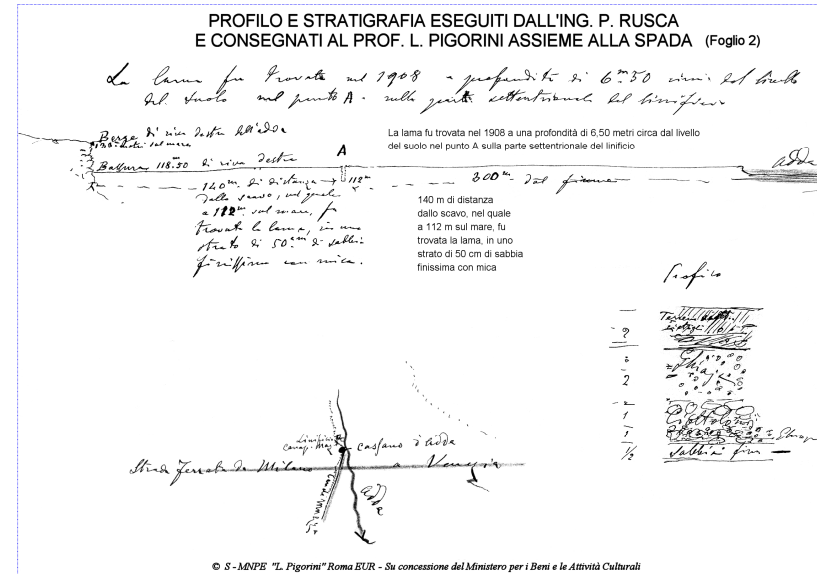 PROFILO E STRATIGRAFIA ESEGUITI DALL'ING. P. RUSCA
E CONSEGNATI AL PROF. L. PIGORINI ASSIEME ALLA SPADA (Foglio 2)
La lama fu trovata nel 1908 a profondità di 6.m50 circa dal livello
del suolo nel punto A. nella parte settentrionale del linificio
Berge di riva destra dell'adda
sul mare
Bassura 118.50 di riva destra
A
La lama fu trovata nel 1908 a una profondità di 6,50 metri circa dal livello
del suolo nel punto A sulla parte settentrionale del linificio
adda
140m. di distanza
112m
300m. dal fiume
dallo scavo, nel quale
a 112m. sul mare, fu
trovata la lama, in uno
strato di 50.cm di sabbia
finissima con mica.
140 m di distanza
dallo scavo, nel quale
a 112 m sul mare, fu
trovata la lama, in uno
strato di 50 cm di sabbia
finissima con mica
Profilo
2
Ghiaja
2
1
Ciottoloni
1
½ Sabbia fina
Linificio
Canap. Naz.
Cassano d'adda
Strada ferrata da Milano a Venezia
adda
© S - MNPE "L. Pigorini" Roma EUR - Su concessione del Ministero per i Beni e le Attività Culturali